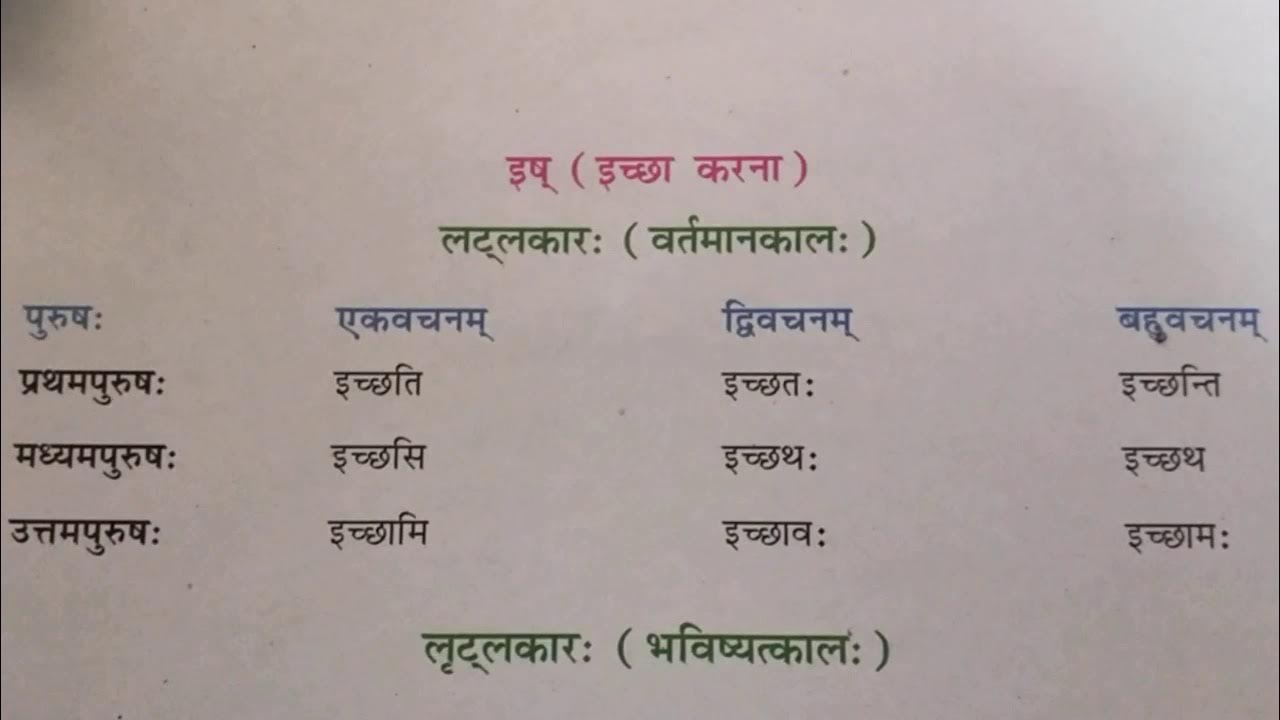 इष् ( इच्छा करना )
लट्लकारः ( वर्तमानकालः )
पुरुषः एकवचनम् द्विवचनम् बहुवचनम्
प्रथमपुरुषः इच्छति इच्छतः इच्छन्ति
मध्यमपुरुषः इच्छसि इच्छथः इच्छथ
उत्तमपुरुषः इच्छामि इच्छावः इच्छामः
लृट्लकारः ( भविष्यत्कालः )